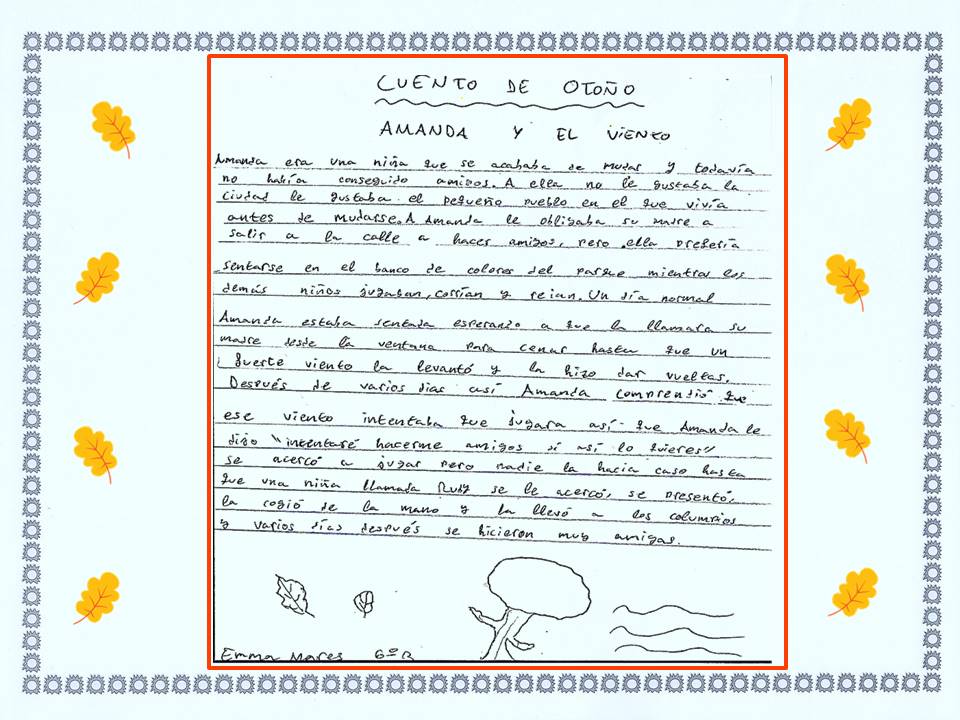 CUENTO DE OTOÑO
AMANDA Y EL VIENTO
Amanda era una niña que se acababa de mudar y todavía
no había conseguido amigos. A ella no le gustaba la
ciudad le gustaba el pequeño pueblo en el que vivía
antes de mudarse. A Amanda le obligaba su madre a
salir a la calle a hacer amigos, pero ella prefería
sentarse en el banco de colores del parque mientras los
demás niños jugaban, corrían y reian. Un día normal
Amanda estaba sentada esperando a que la llamara su
madre desde la ventana para cenar hasta que un
fuerte viento la levantó y la hizo dar vueltas.
Después de varios dias así Amanda comprendió que
ese viento intentaba que jugara así que Amanda le
dijo "intentaré hacerme amigos si así lo quieres"
se acercó a jugar pero nadie la hacia caso hasta
que una niña llamada Ruby se le acercó, se presentó,
la cogió de la mano y la llevó a los columpios
y varios días después se hicieron muy amigas.
Emma Mares 6ºB